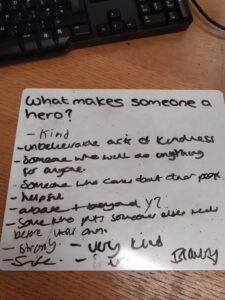 What makes someone a
hero?
- Kind
- unbelievable acts of kindness
- Someone who will do anything
for anyone.
- Someone who cares about other people
- helpful
- above + beyond
- Some who puts someone elses needs
before their own.
- strong - very kind
- Safe - Bravery